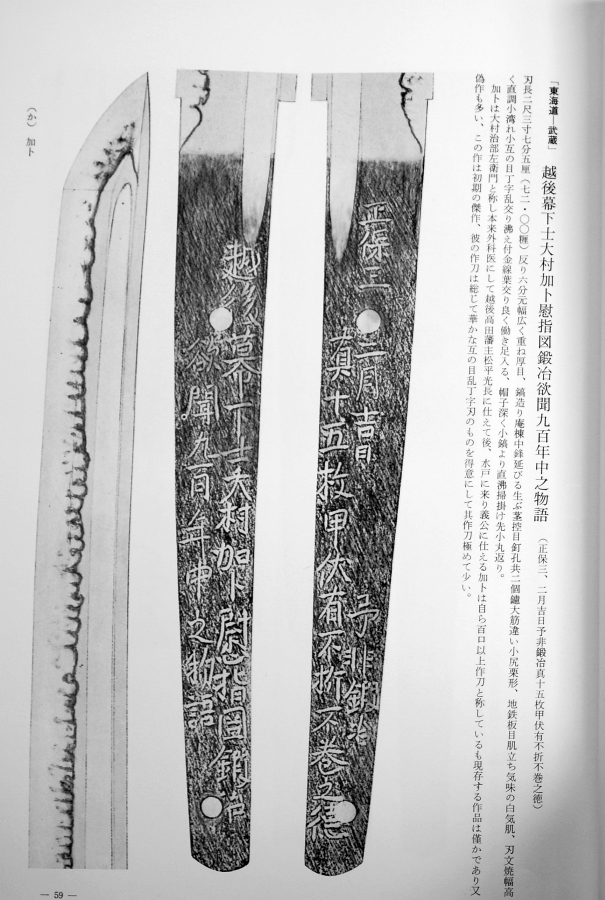 「東海道―武蔵」　越後幕下士大村加卜慰指図鍛冶欲聞九百年中之物語　（正保三、二月吉日予非鍛冶真十五枚甲伏有不折不巻之徳）
刃長二尺三寸七分五厘（七二・〇〇糎）反り六分元幅広く重ね厚目、鎬造り庵棟中鋒延びる生ぶ茎控目釘孔共二個鑢大筋違い小尻栗形、地鉄板目肌立ち気味の白気肌、刃文焼幅高
く直調小湾れ小互の目丁字乱交り沸え付金線葉交り良く働き足入る、帽子深く小鎬より直沸掃掛け先小丸返り。
加卜は大村治部左衛門と称し本来外科医にして越後高田藩主松平光長に仕えて後、水戸に来り義公に仕える加卜は自ら百口以上作刀と称しているも現存する作品は僅かであり又
偽作も多い、この作は初期の傑作、彼の作刀は総じて華かな互の目乱丁字刃のものを得意にして其作刀極めて少い。
正保三二月吉日　予非鍛冶
真十五枚甲伏有不折不巻之徳
越後幕下士大村加卜慰指図鍛冶
欲聞九百年中之物語
（か）　加卜
― 59 ―